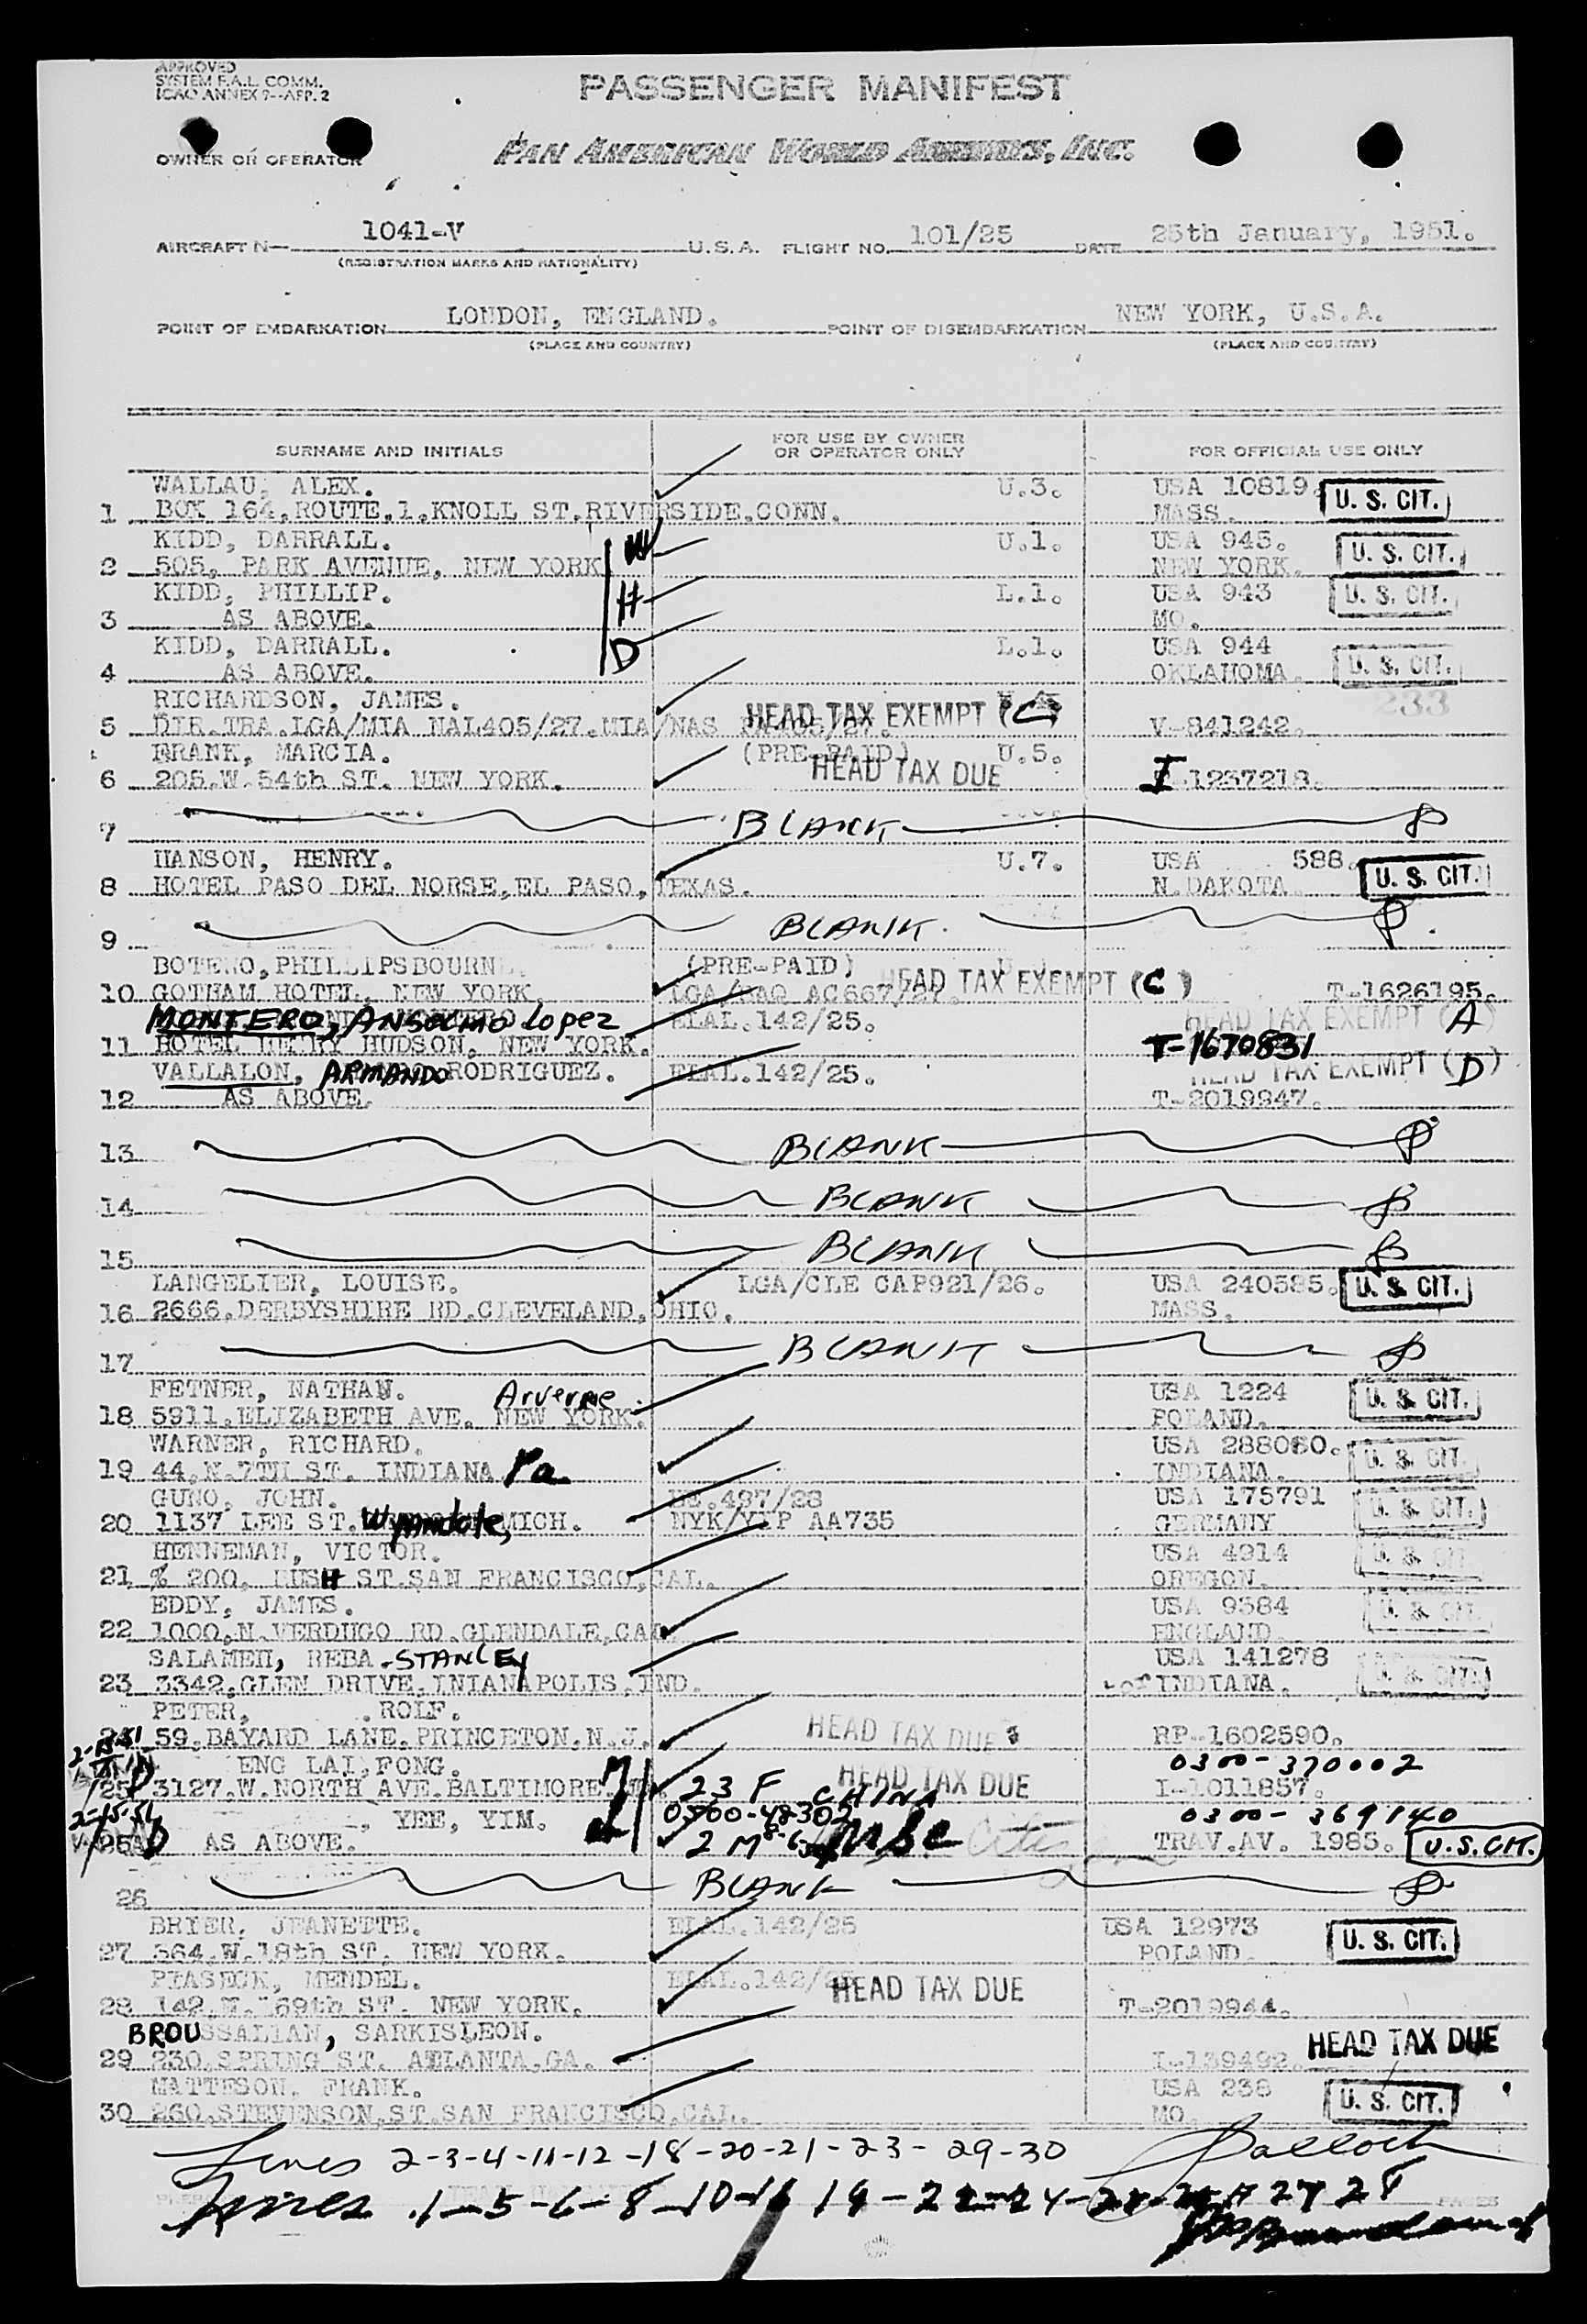 APPROVED
SYSTEM F.A.L. COMM.
ICAO ANNEX 9--APP. 2
PASSENGER MANIFEST
OWNER OR OPERATOR PAN AMERICAN WORLD AIRWAYS, INC.
AIRCRAFT N— 1041-V U.S.A. FLIGHT NO. 101/25 DATE 25th January, 1951.
(REGISTRATION MARKS AND NATIONALITY)
POINT OF EMBARKATION LONDON, ENGLAND. POINT OF DISEMBARKATION NEW YORK, U.S.A.
(PLACE AND COUNTRY) (PLACE AND COUNTRY)
SURNAME AND INITIALS FOR USE BY OWNER OR OPERATOR ONLY FOR OFFICIAL USE ONLY
WALLAU, ALEX. U.3. USA 10819. U. S. CIT.
1 BOX 164,ROUTE.1,KNOLL ST.RIVERSIDE.CONN. MASS.
KIDD, DARRALL. W U.1. USA 945. U. S. CIT.
2 505, PARK AVENUE, NEW YORK NEW YORK.
KIDD, PHILLIP. H L.1. USA 943 U. S. CIT.
3 AS ABOVE. MO.
KIDD, DARRALL. D L.1. USA 944 U. S. CIT.
4 AS ABOVE. OKLAHOMA.
RICHARDSON, JAMES. HEAD TAX EXEMPT (C) 233
5 DIR.TRA.LGA/MIA NAL405/27.MIA/NAS V-841242.
FRANK, MARCIA. (PRE-PAID) U.5.
6 205.W.54th ST. NEW YORK. HEAD TAX DUE I-1237218.
7 BLANK
HANSON, HENRY. U.7. USA 588. U. S. CIT.
8 HOTEL PASO DEL NORSE,EL PASO,TEXAS. N.DAKOTA
9 BLANK.
BOTERO,PHILLIPSBOURNE (PRE-PAID) HEAD TAX EXEMPT (C)
10 GOTHAM HOTEL, NEW YORK. LGA/BAQ AC667/27. T-1626195.
MONTERO, ANSOLMO Lopez ELAL.142/25. HEAD TAX EXEMPT (A)
11 HOTEL HENRY HUDSON, NEW YORK. T-1670831
VALLALON, ARMANDO RODRIGUEZ. ELAL.142/25. HEAD TAX EXEMPT (D)
12 AS ABOVE. T-2019947.
13 BLANK
14 BLANK
15 BLANK
LANGELIER, LOUISE. LGA/CLE CAP921/26. USA 240585. U. S. CIT.
16 2666.DERBYSHIRE RD.CLEVELAND,OHIO. MASS.
17 BLANK
FETNER, NATHAN. Arverne USA 1224 U. S. CIT.
18 5911.ELIZABETH AVE. NEW YORK. POLAND.
WARNER, RICHARD. USA 288060. U. S. CIT.
19 44.N.7TH ST. INDIANA Pa. INDIANA.
GUNO, JOHN. 497/28 USA 175791 U. S. CIT.
20 1137 LEE ST. Wyandote, MICH. NYK/YIP AA735 GERMANY
HENNEMAN, VICTOR. USA 4914 U. S. CIT.
21 % 200, BUSH ST.SAN FRANCISCO,CAL. OREGON.
EDDY, JAMES. USA 9384 U. S. CIT.
22 1000.N.VERDUGO RD.GLENDALE,CAL. ENGLAND
SALAMEH, REBA -STANLEY USA 141278 U. S. CIT.
23 3342.GLEN DRIVE.INIANAPOLIS,IND. INDIANA.
PETER, ROLF. HEAD TAX DUE
24 59.BAYARD LANE.PRINCETON.N.J. RP-1602590.
2-15-51 ENG LAI,FONG. HEAD TAX DUE 0300-370002
25 3127.W.NORTH AVE.BALTIMORE 23 F CHINA I-1011857.
2-15-51 , YEE, YIM. 0300-48302 0300-369140
25A AS ABOVE. 2 M TRAV.AV. 1985. U.S.CIT.
26 BLANK
BRIER, JEANETTE. ELAL.142/25 USA 12973 U. S. CIT.
27 364.W.18th ST. NEW YORK. POLAND.
PIASECK, MENDEL. ELAL.142/25 HEAD TAX DUE
28 142.W.169th ST. NEW YORK. T-2019944.
BROUSSALIAN, SARKISLEON. HEAD TAX DUE
29 230.SPRING ST. ATLANTA.GA. I-139492.
MATTESON, FRANK. USA 238 U. S. CIT.
30 260.STEVENSON.ST.SAN FRANCISCO,CAL. MO.
Lines 2-3-4-11-12-18-20-21-23-29-30
Lines 1-5-6-8-10-16 19-22-24- 27 28
PAGES